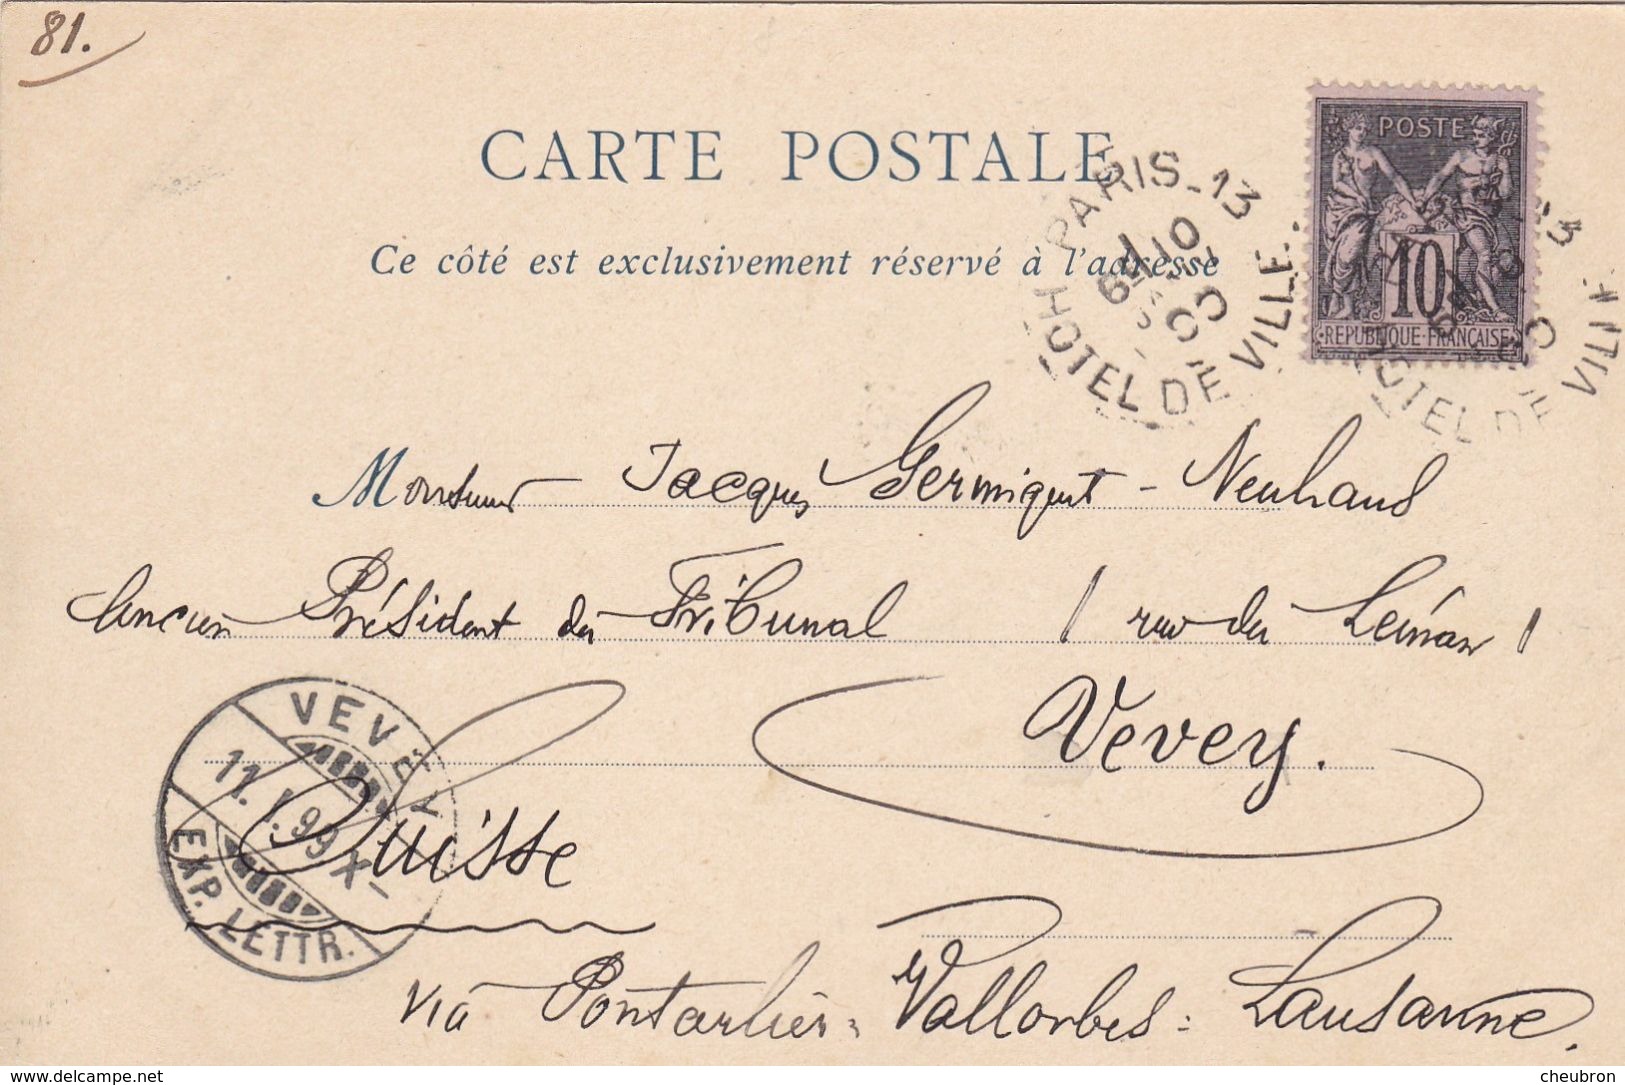 81.
CARTE POSTALE
Ce côté est exclusivement réservé à l'adresse
POSTE
10
REPUBLIQUE FRANÇAISE
PARIS-13
HOTEL DE VILLE
Monsieur Jacques Germiquet-Neuhaus
Ancien Président du Tribunal 1 rue du Léman 1
Vevey.
VEVEY
11.I.99 X-
EXP. LETTR.
Suisse
via Pontarlier = Vallorbes = Lausanne.
www.delcampe.net
cheubron